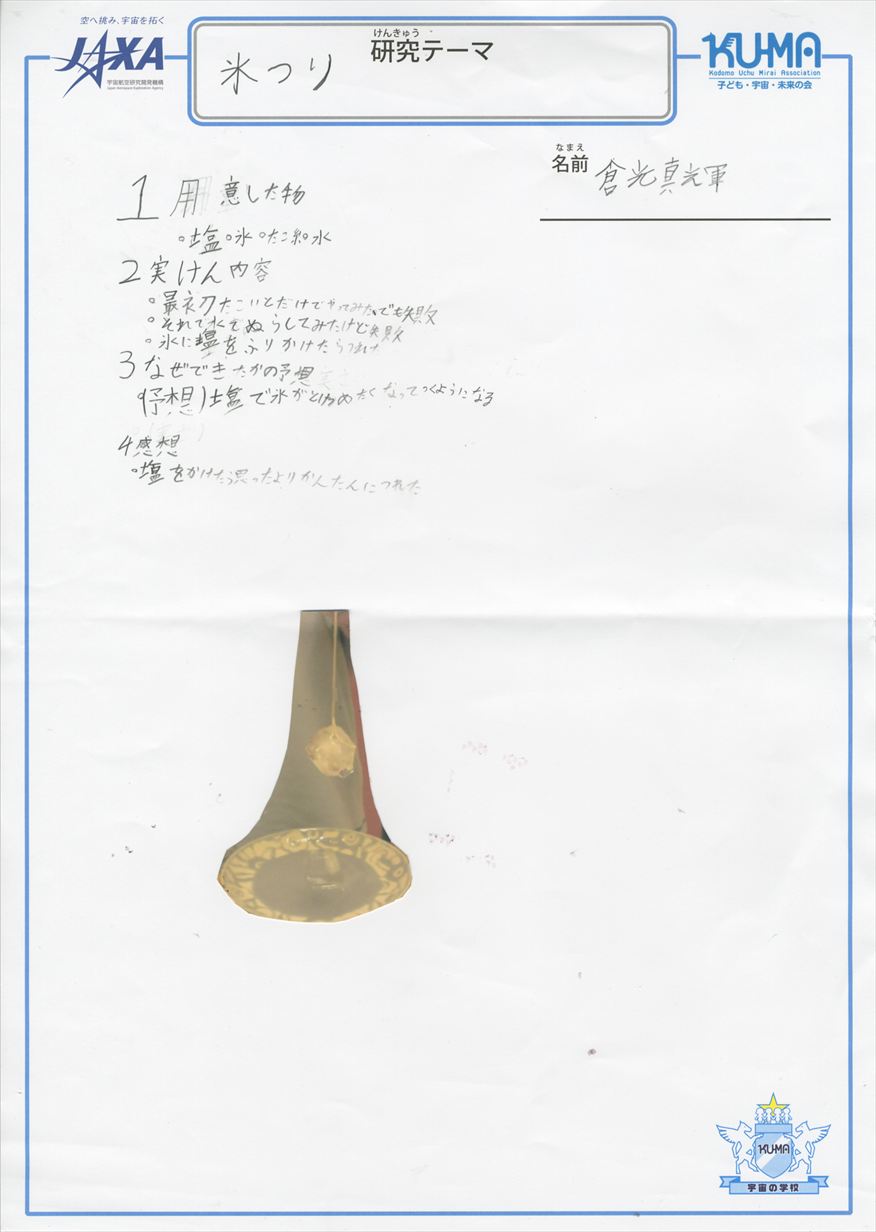 空へ挑み、宇宙を拓く
JAXA
宇宙航空研究開発機構
Japan Aerospace Exploration Agency
けんきゅう
研究テーマ
氷つり
KU-MA
Kodomo Uchu Mirai Association
子ども・宇宙・未来の会
なまえ
名前 倉光真光軍
1 用意した物
。塩。氷。たこ糸。水
2 実けん内容
。最初たこいとだけでやってみた。でも失敗
。それで水でぬらしてみたけど失敗
。氷に塩をふりかけたらつれた
3 なぜできたかの予想
(予想)塩で氷がつめたくなってつくようになる
4 感想
。塩をかけたら思ったよりかんたんにつれた
KU-MA
宇宙の学校